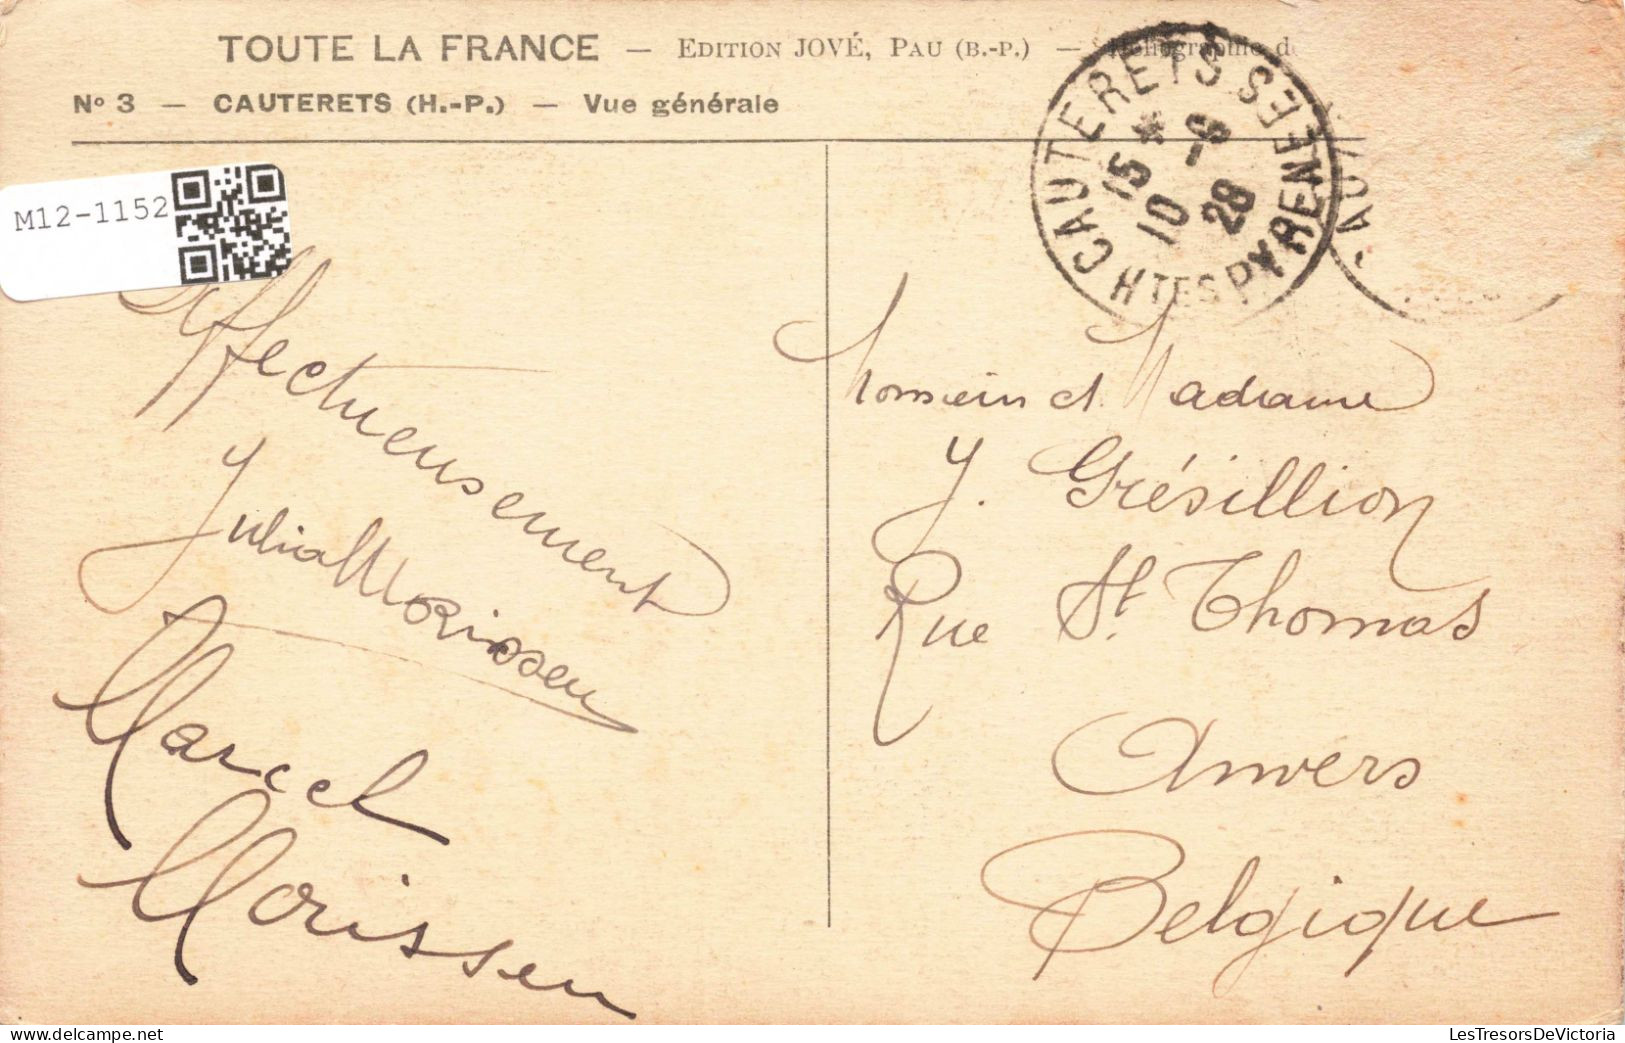 TOUTE LA FRANCE — EDITION JOVÉ, PAU (B.-P.) — Héliographie de
N° 3 — CAUTERETS (H.-P.) — Vue générale
M12-1152
CAUTERETS HTES PYRENEES
15 * 10
-6 28
Affectueusement
Julia Morissen
Marcel
Morissen
Monsieur et Madame
J. Grésillion
Rue St. Thomas
Anvers
Belgique
LesTresorsDeVictoria